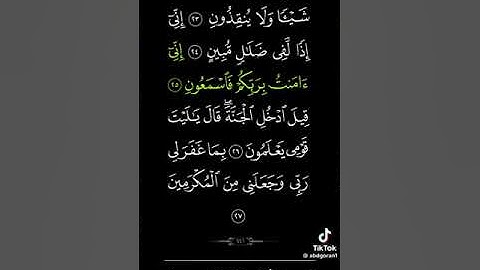 شَيْـًٔا وَلَا يُنقِذُونِ ٢٣ إِنِّىٓ
إِذًا لَّفِى ضَلَـٰلٍ مُّبِينٍ ٢٤ إِنِّىٓ
ءَامَنتُ بِرَبِّكُمْ فَٱسْمَعُونِ ٢٥
قِيلَ ٱدْخُلِ ٱلْجَنَّةَ ۖ قَالَ يَـٰلَيْتَ
قَوْمِى يَعْلَمُونَ ٢٦ بِمَا غَفَرَ لِى
رَبِّى وَجَعَلَنِى مِنَ ٱلْمُكْرَمِينَ
٢٧
٤٤١
TikTok
@abdgoran1